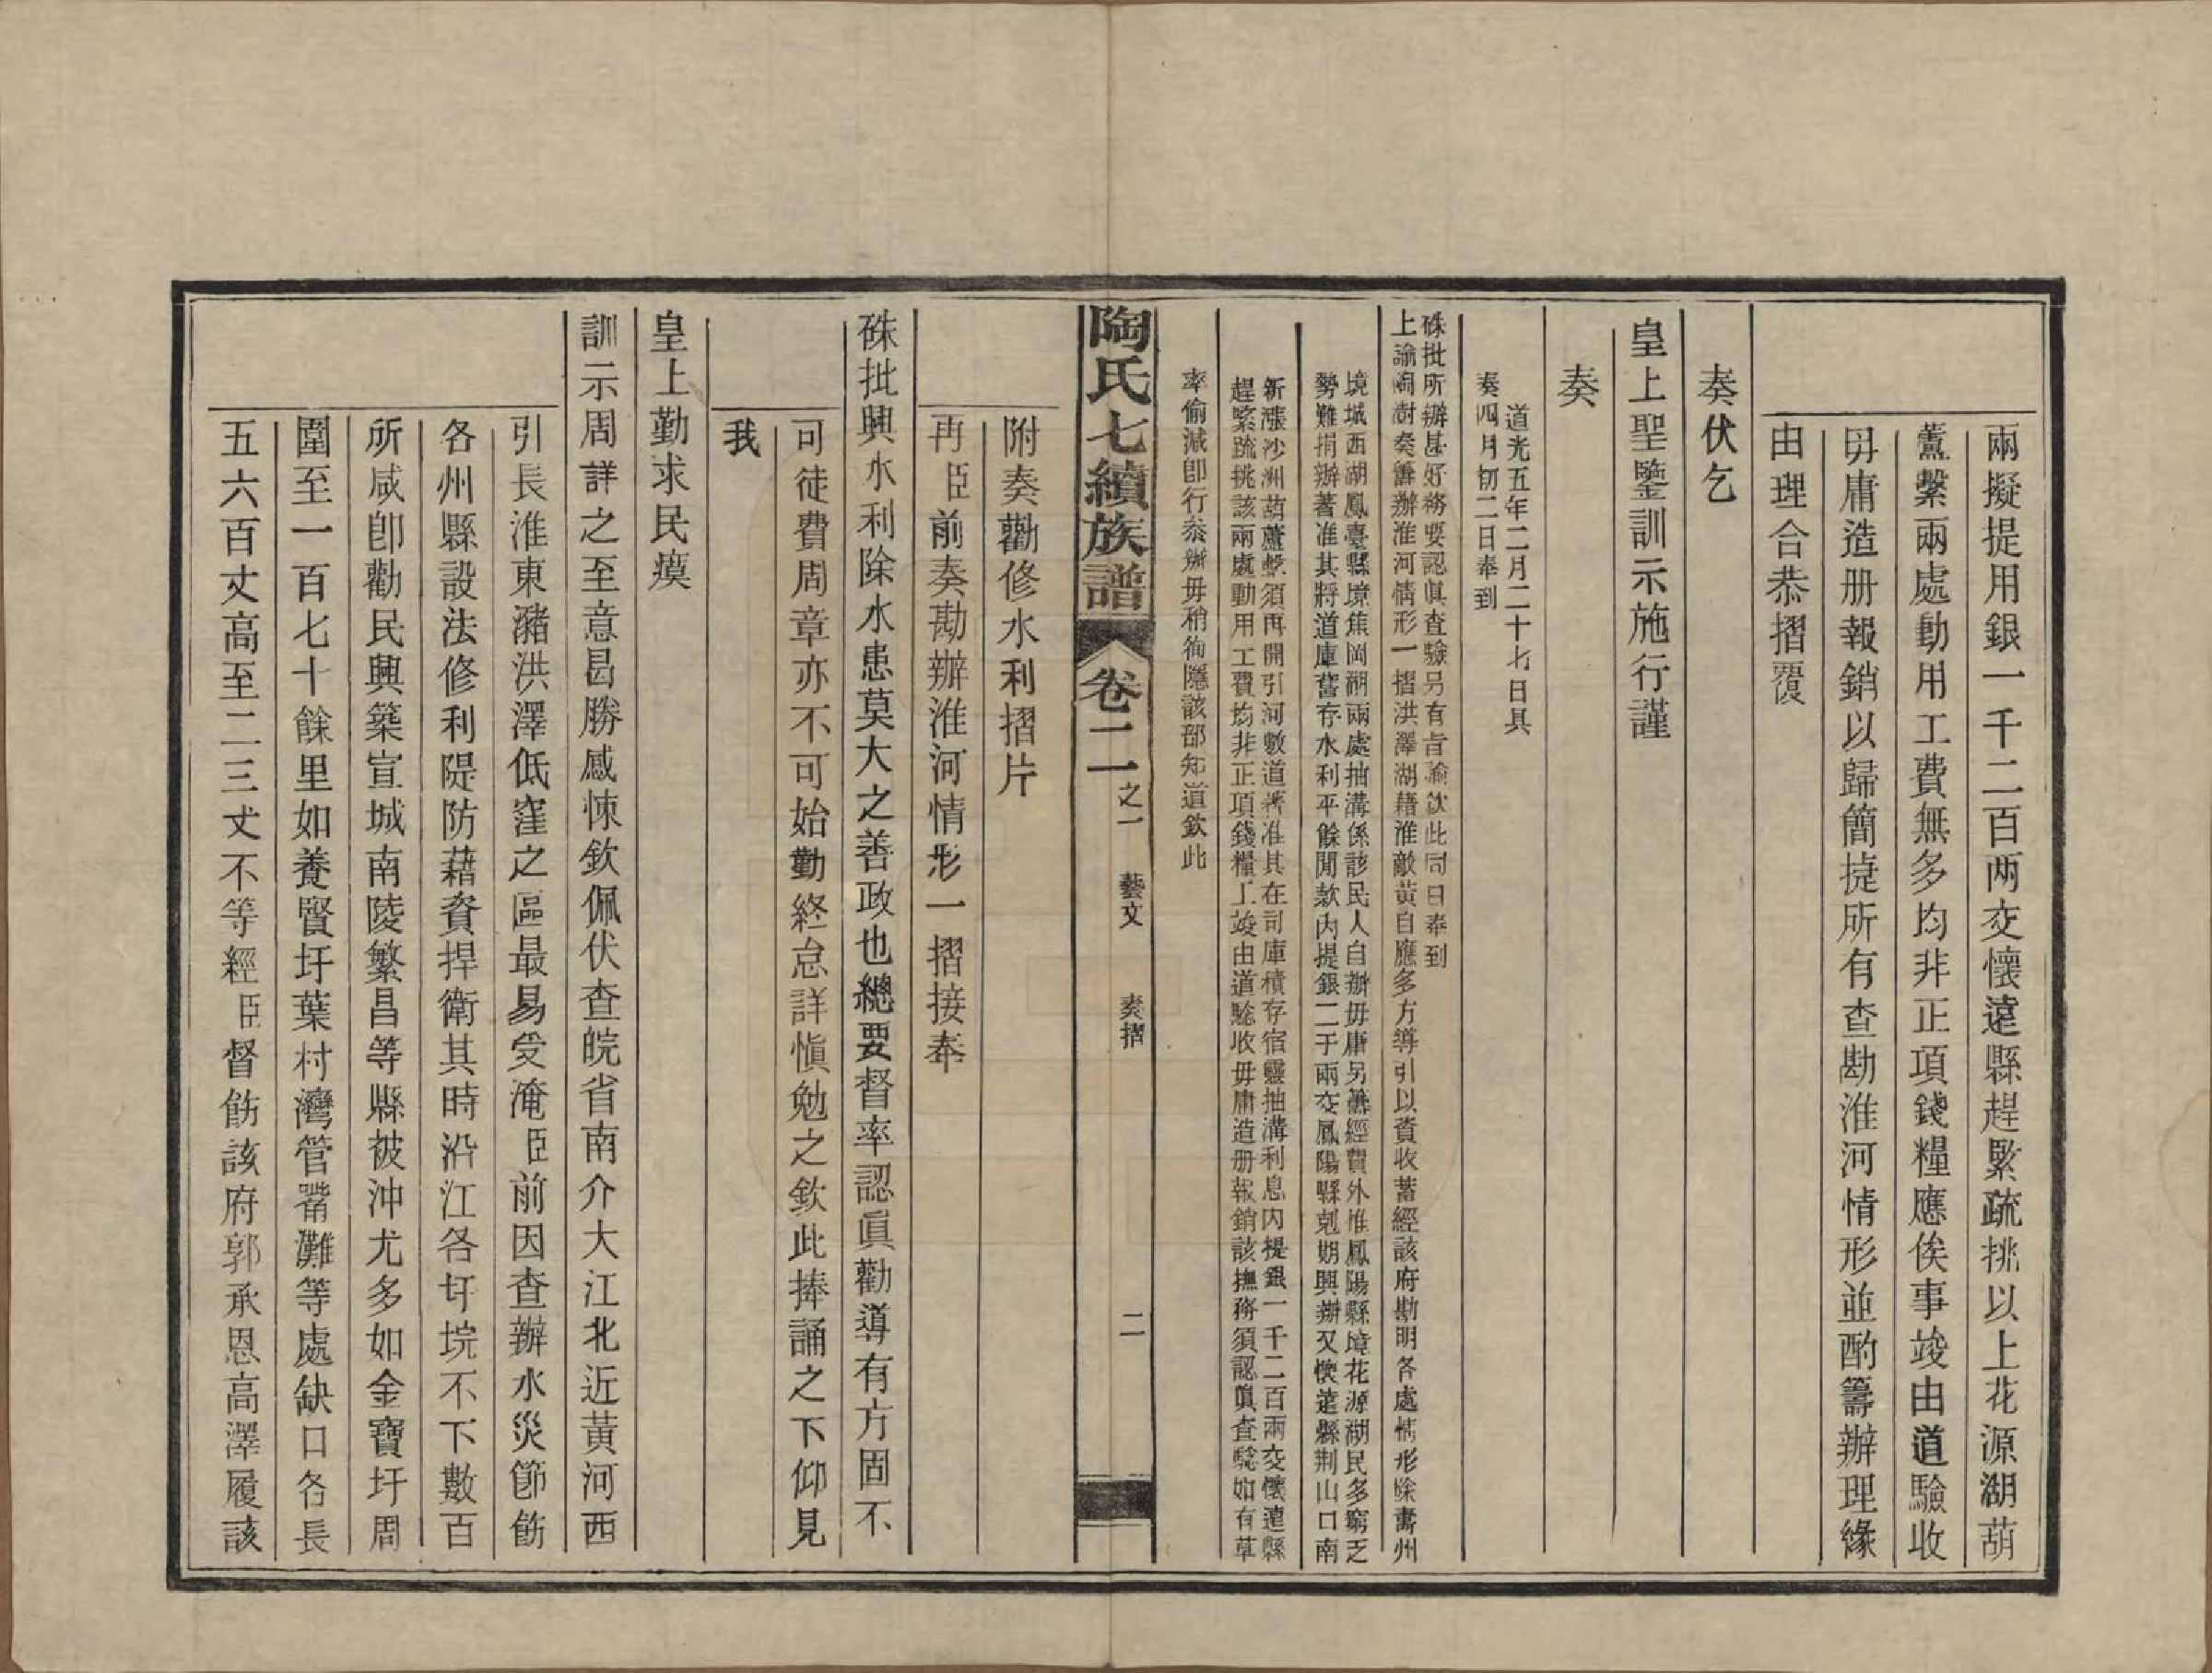 兩擬提用銀一千二百两交懷遠縣趕緊疏挑以上花源湖葫
蘆繫兩處動用工費無多均非正項錢糧應俟事竣由道驗收
毋庸造册報銷以歸簡捷所有查勘淮河情形並酌籌辦理緣
由理合恭摺覆
奏伏乞
皇上聖鑒訓示施行謹
奏
道光五年二月二十七日具
奏四月初二日奉到
硃批所辦甚好務要認眞查驗另有旨諭欽此同日奉到
上諭陶澍奏籌辦淮河情形一摺洪澤湖藉淮敵黃自應多方導引以資收蓄經該府勘明各處情形除壽州
境城西湖鳳臺縣境焦岡湖兩處抽溝係該民人自辦毋庸另籌經費外惟鳳陽縣境花源湖民多窮乏
勢難捐辦著准其將道庫舊存水利平餘閒款内提銀二千兩交鳳陽縣剋期興辦又懷遠縣荆山口南
新漲沙洲葫蘆繫須再開引河數道著准其在司庫積存宿靈抽溝利息内提銀一千二百兩交懷遠縣
趕緊疏挑該兩處動用工費均非正項錢糧工竣由道驗收毋庸造册報銷該撫務須認眞查驗如有草
率偷減卽行叅辦毋稍徇隱該部知道欽此
陶氏七續族譜 卷二 之一 藝文 奏摺 二
附奏勸修水利摺片
再臣前奏勘辦淮河情形一摺接奉
硃批興水利除水患莫大之善政也總要督率認眞勸導有方固不
可徒費周章亦不可始勤終怠詳愼勉之欽此捧誦之下仰見
我
皇上勤求民瘼
訓示周詳之至意曷勝感悚欽佩伏查皖省南介大江北近黃河西
引長淮東瀦洪澤低窪之區最易受淹臣前因查辦水災節飭
各州縣設法修利隄防藉資捍衛其時沿江各圩垸不下數百
所咸卽勸民興築宣城南陵繁昌等縣被冲尤多如金寶圩周
圍至一百七十餘里如養賢圩葉村灣管鬵灘等處缺口各長
五六百丈高至二三丈不等經臣督飭該府郭承恩高澤履該